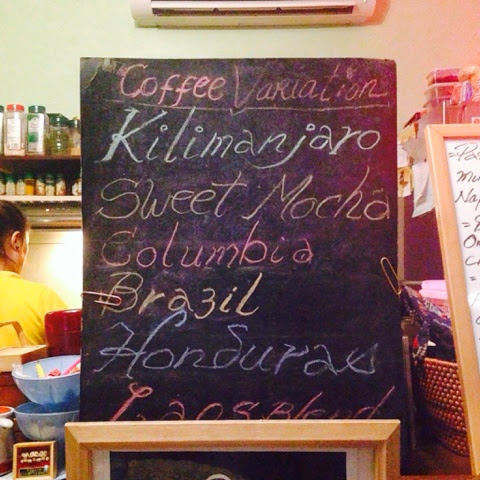 Coffee Variation
Kilimanjaro
Sweet Mocha
Columbia
Brazil
Honduras
Laos Blend